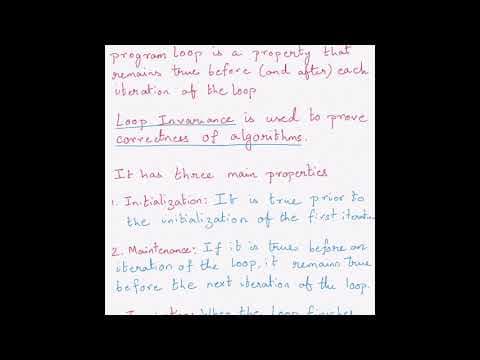 program loop is a property that
remains true before (and after) each
iteration of the loop
Loop Invariance is used to prove
correctness of algorithms.
It has three main properties
1. Initialization: It is true prior to
the initialization of the first iteration
2. Maintenance: If it is true before an
iteration of the loop, it remains true
before the next iteration of the loop.
When the loop finishes